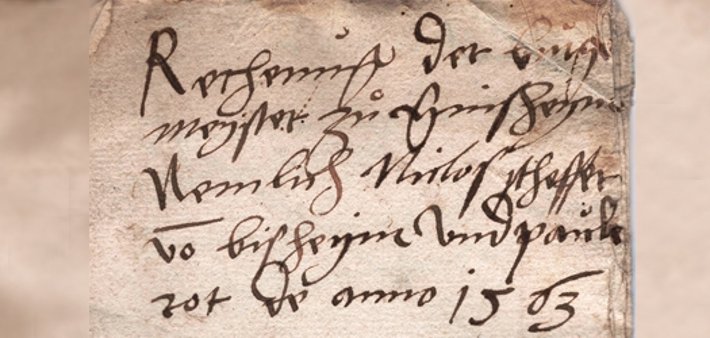 Rechenuß der burge
meyster zů Ginsheym
Nemlich Niclos scheffer
vō bisheym Vnd paule
rot de anno 1563